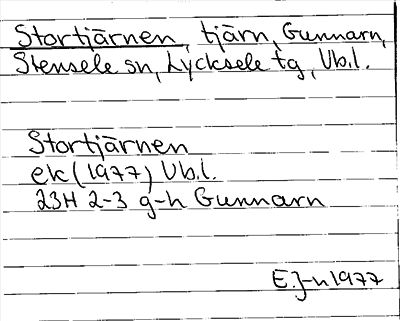 Stortjärnen, tjärn, Gunnarn,
Stensele sn, Lycksele tg, Vb.l.
Stortjärnen
ek (1977) Vb.l.
23H 2-3 g-h Gunnarn
E.J-n 1977